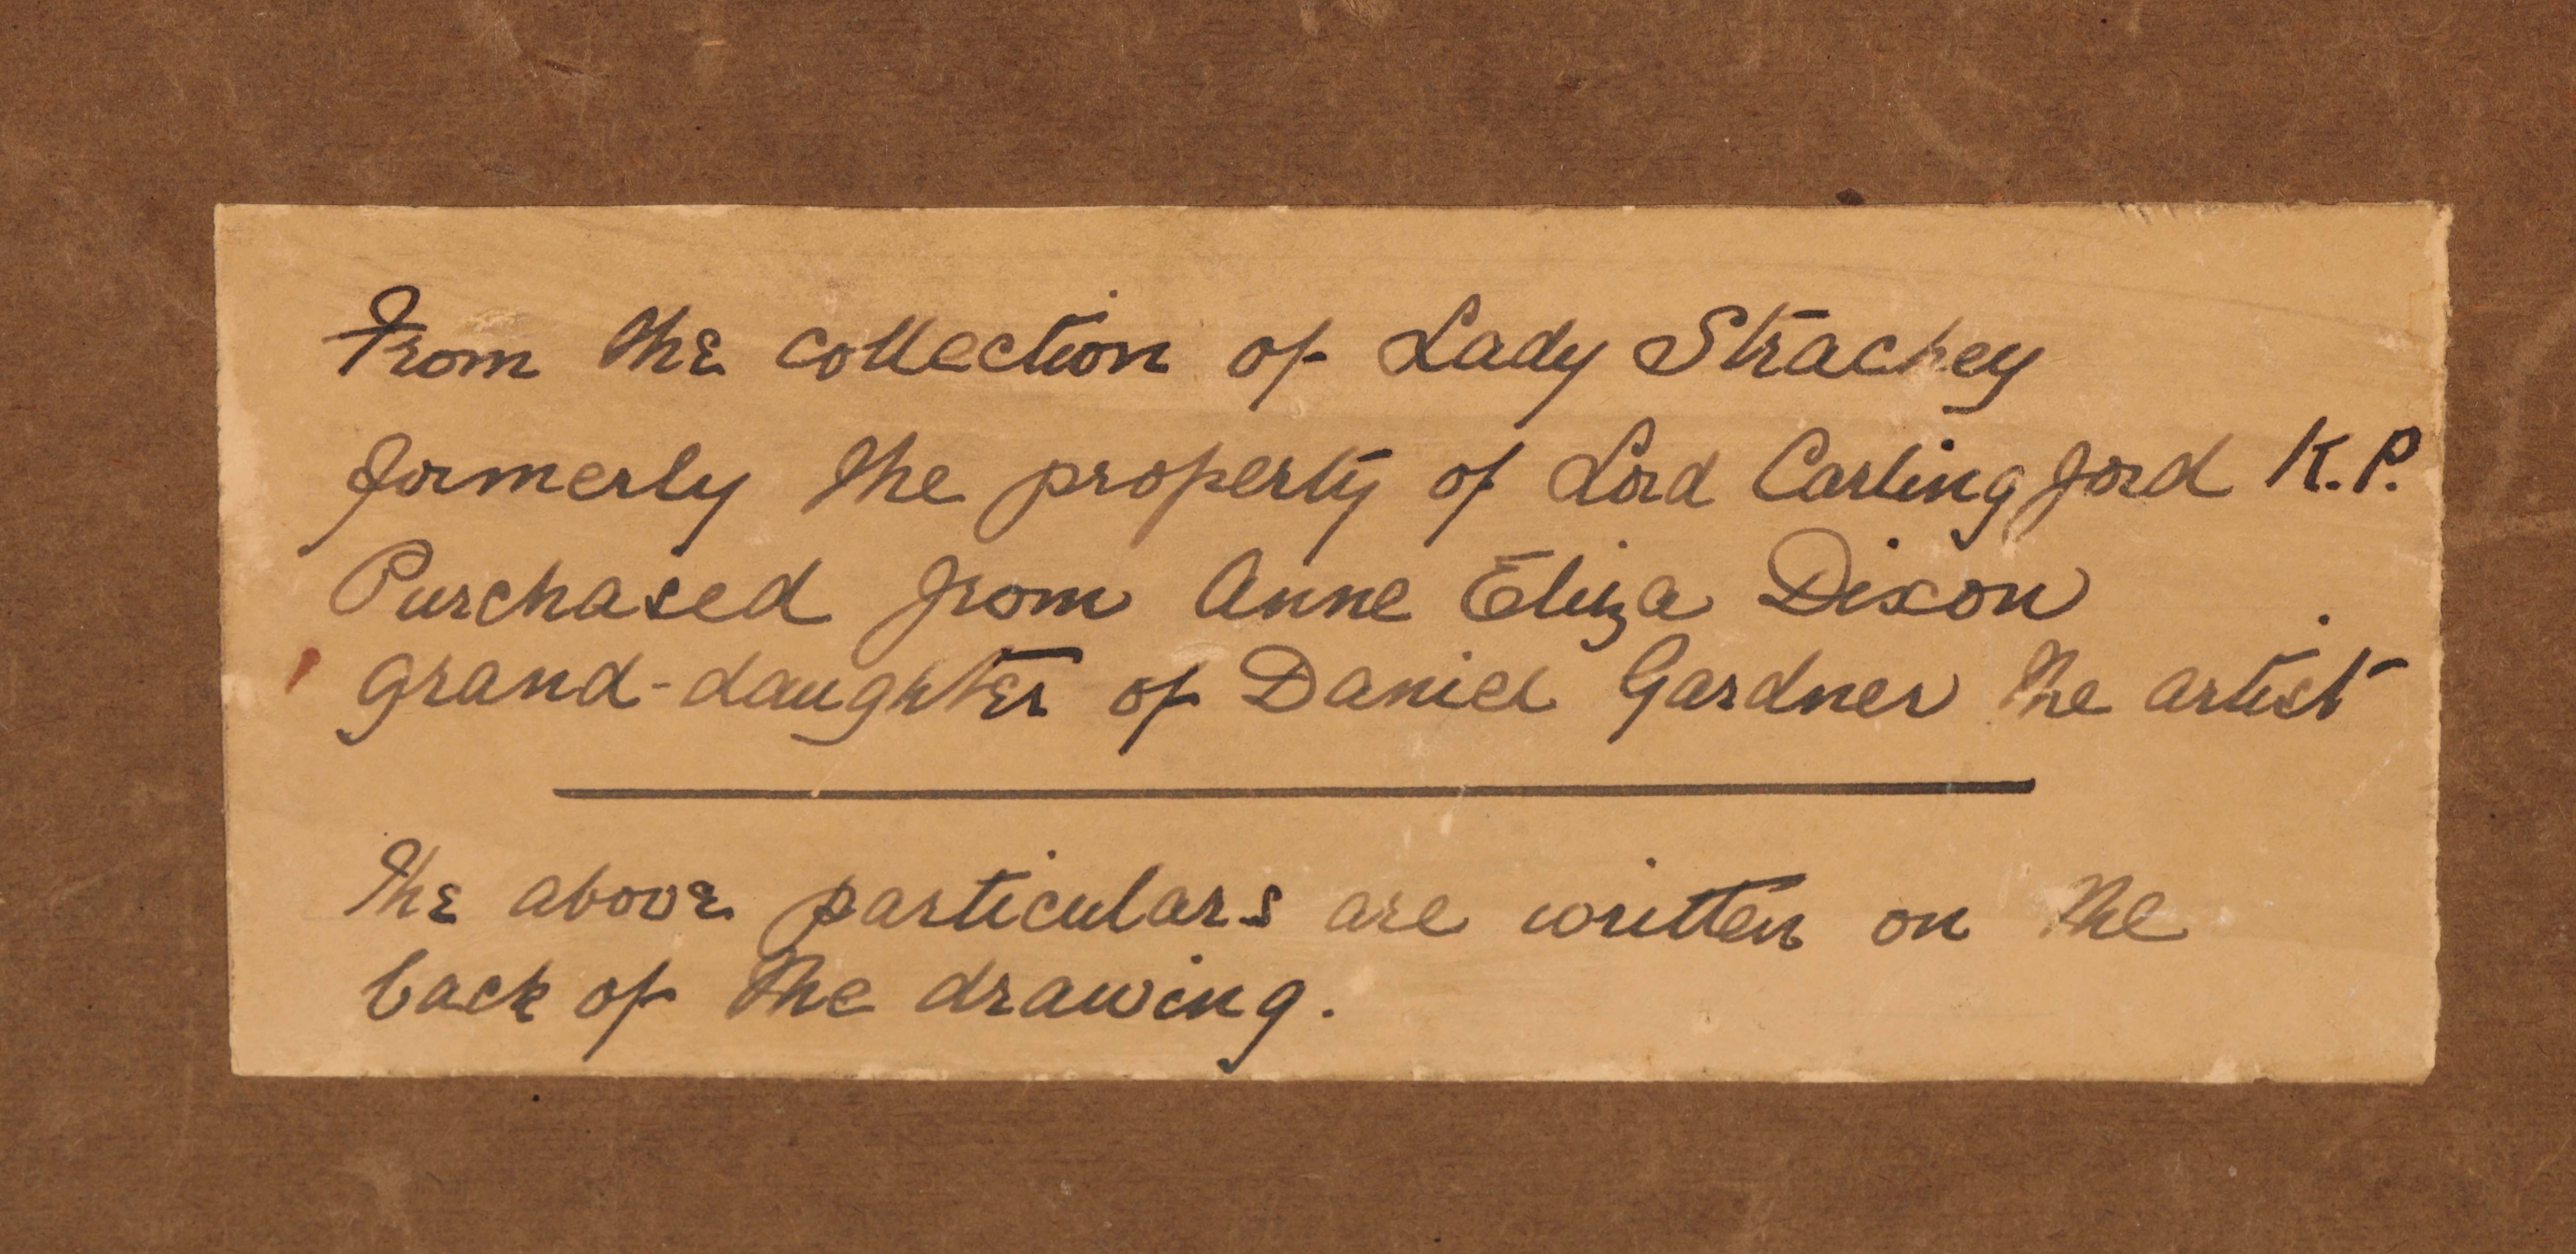 From the collection of Lady Strachey
formerly the property of Lord Carlingford K.P.
Purchased from Anne Eliza Dixon
grand-daughter of Daniel Gardner the artist
The above particulars are written on the
back of the drawing.